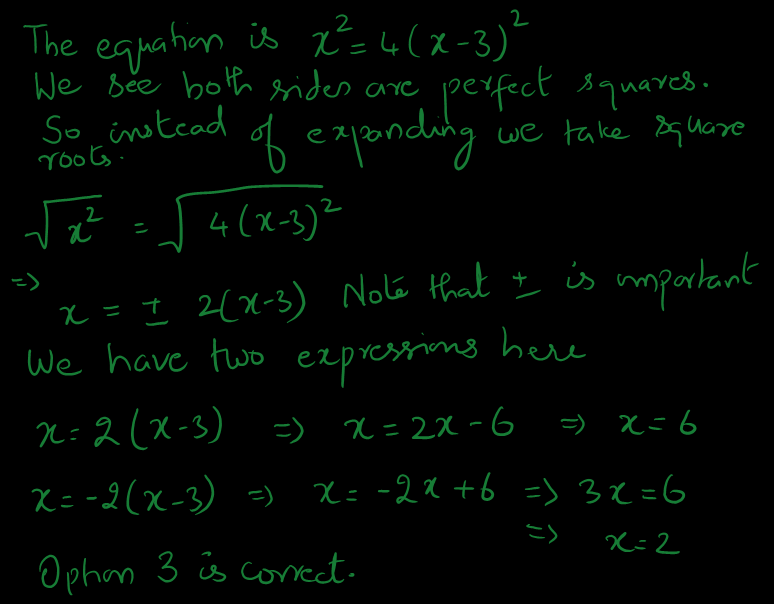 The equation is x² = 4(x-3)²
We see both sides are perfect squares.
So instead of expanding we take square
roots.
√x² = √4(x-3)²
=>
x = ± 2(x-3) Note that ± is important
We have two expressions here
x = 2(x-3) => x = 2x - 6 => x = 6
x = -2(x-3) => x = -2x + 6 => 3x = 6
=> x = 2
Option 3 is correct.